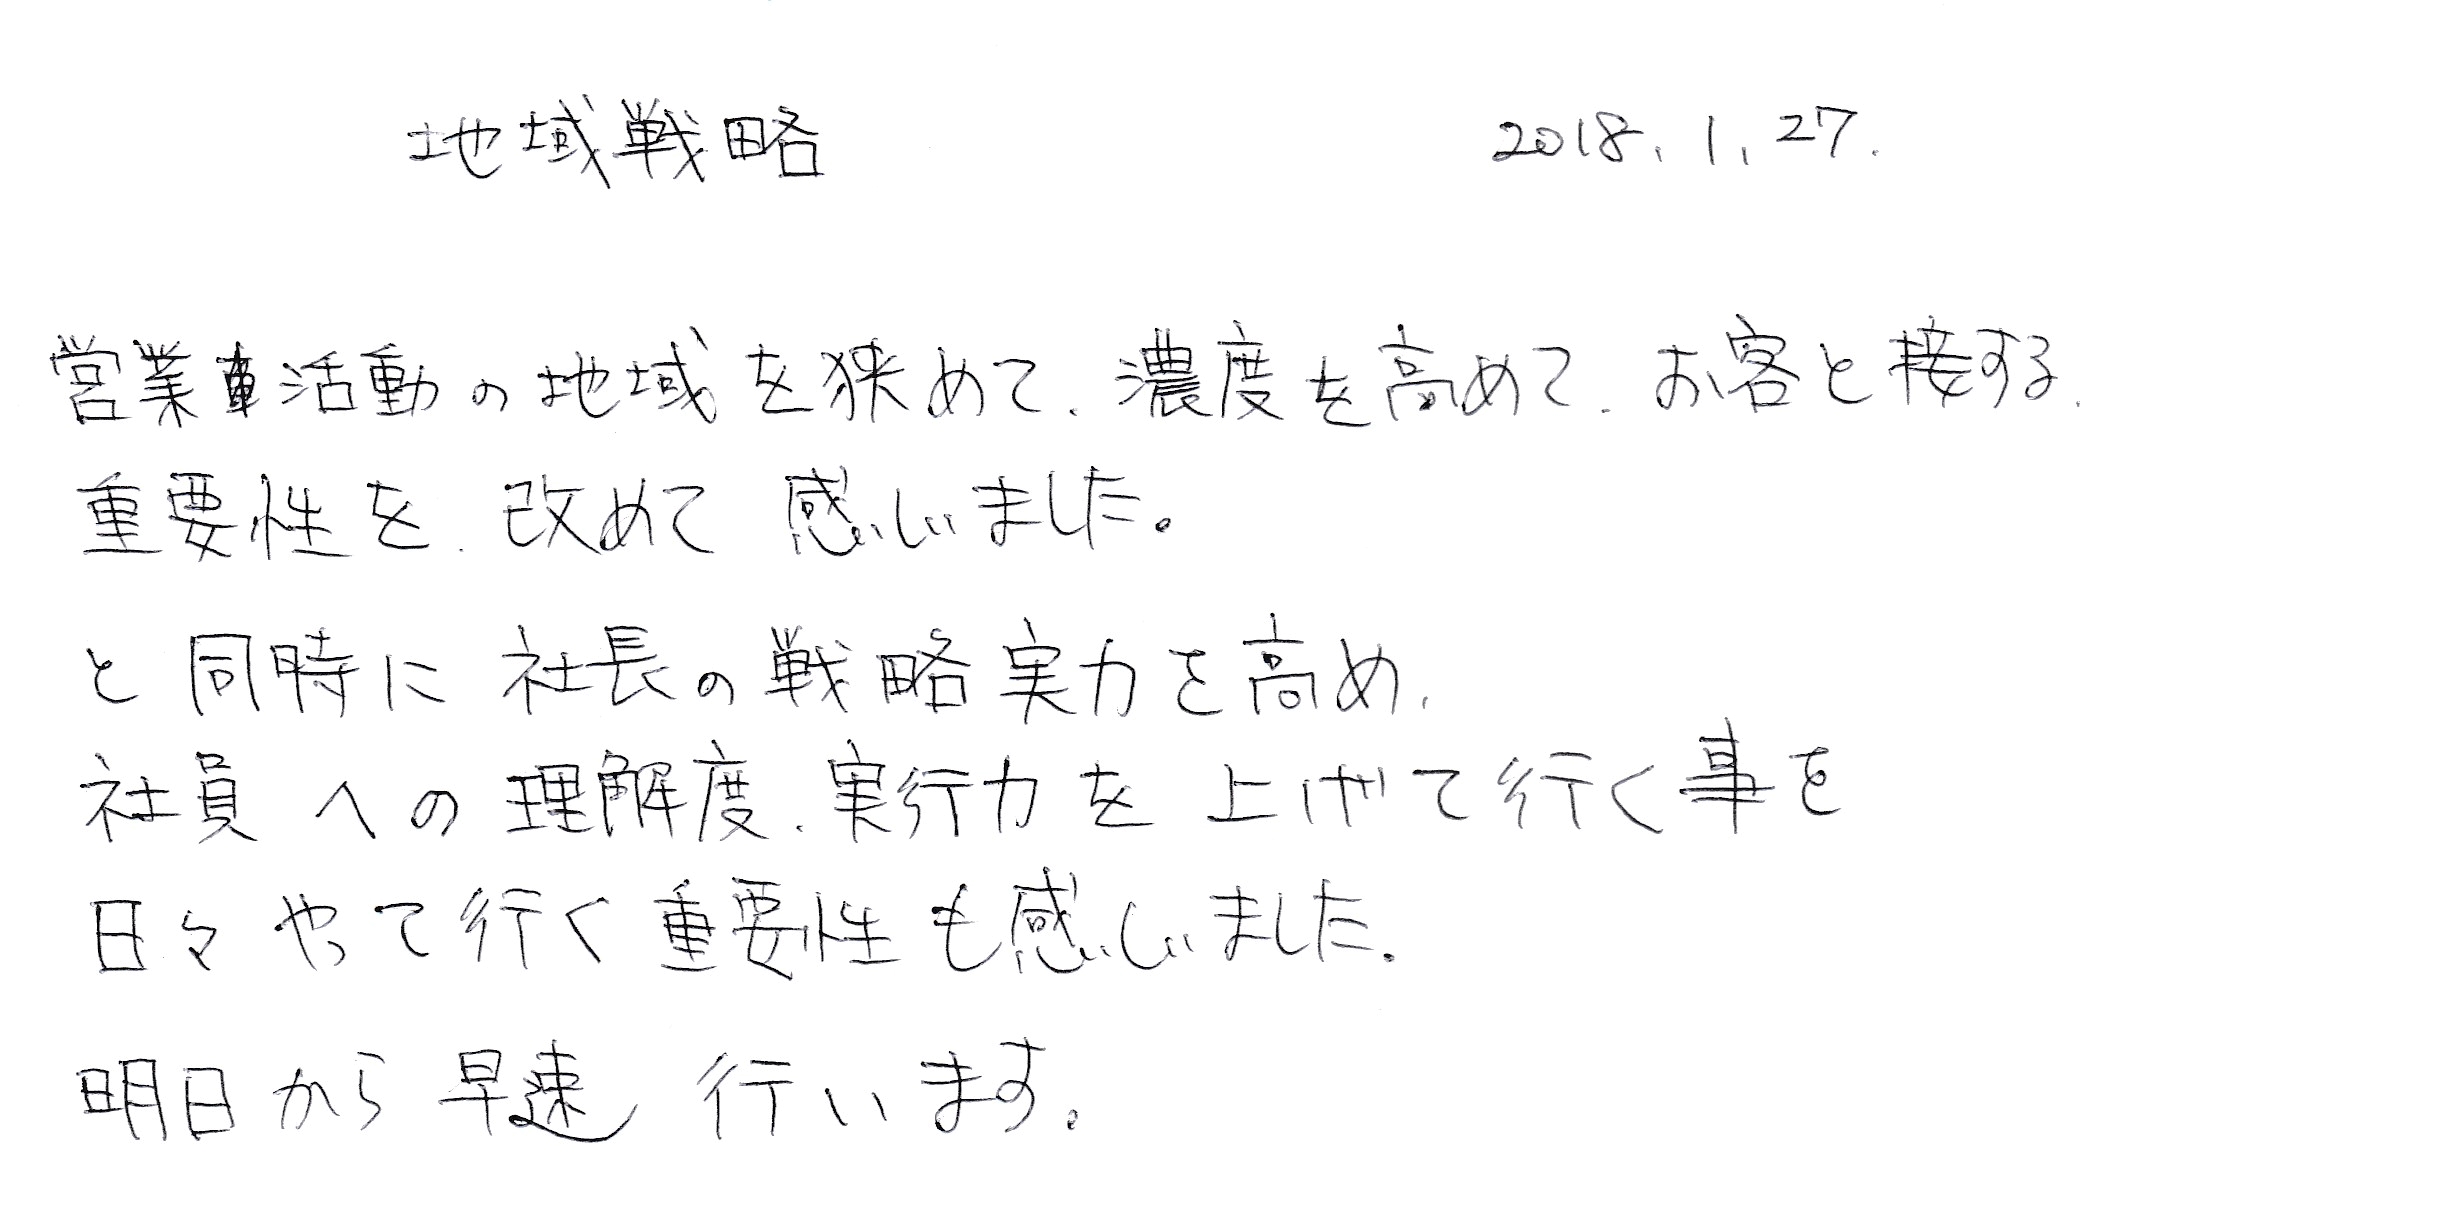 地域戦略 2018.1.27.
営業活動の地域を狭めて、濃度を高めて、お客と接する、
重要性を、改めて感じました。
と同時に社長の戦略実力を高め、
社員への理解度、実行力を上げて行く事を
日々やって行く重要性も感じました。
明日から早速行います。